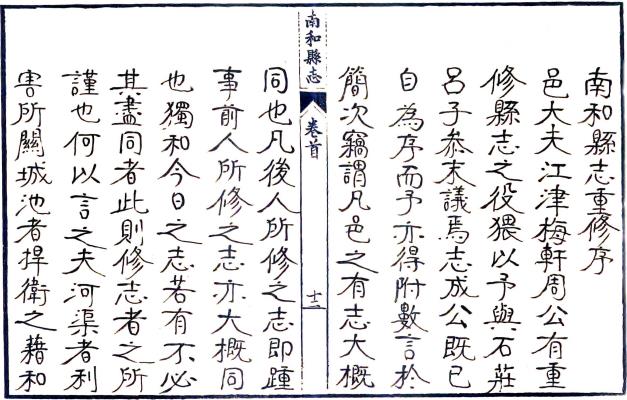 南和縣志重修序
邑大夫江津梅軒周公有重
修縣志之役猥以予與石莊
呂子叅末議焉志成公既已
自為序而予亦得附數言於
簡次竊謂凡邑之有志大概
南和縣志
卷首
十三
同也凡後人所修之志即踵
事前人所修之志亦大概同
也獨和今日之志若有不必
其盡同者此則修志者之所
謹也何以言之夫河渠者利
害所關城池者捍衛之藉和